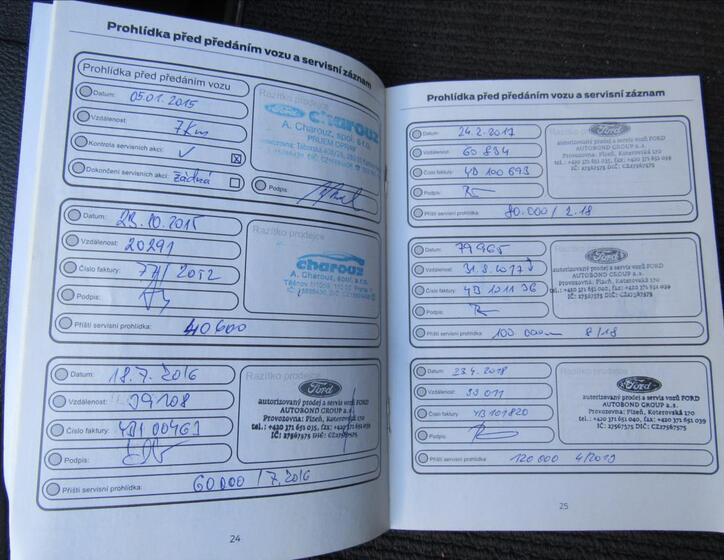 Prohlídka před předáním vozu a servisní záznam
Prohlídka před předáním vozu
Datum: 05.01.2015
Vzdálenost: 7km
Kontrola servisních akcí: ✓ X
Dokončení servisních akcí: žádná
Razítko prodejce
Ford charouz
A. Charouz, spol. s r.o.
Podpis:
Datum: 23.10.2015
Vzdálenost: 20291
Číslo faktury:
Podpis:
Příští servisní prohlídka: 40600
Razítko prodejce
charouz
A. Charouz, spol. s r.o.
Datum: 18.7.2016
Vzdálenost: 39108
Číslo faktury:
Podpis:
Příští servisní prohlídka: 60000 / 7.2016
Razítko prodejce
Ford
autorizovaný prodej a servis vozů FORD
AUTOBOND GROUP a.s.
Provozovna: Plzeň, Koterovská 170
tel.: +420 371 651 035, fax: +420 371 651 039
IČ: 27567575 DIČ: CZ27567575
24
Prohlídka před předáním vozu a servisní záznam
Datum: 24.2.2017
Vzdálenost: 60834
Číslo faktury: YB 100693
Podpis:
Příští servisní prohlídka: 80.000 / 2.18
Ford
autorizovaný prodej a servis vozů FORD
AUTOBOND GROUP a.s.
Provozovna: Plzeň, Koterovská 170
tel.: +420 371 651 040, fax: +420 371 651 039
IČ: 27567575 DIČ: CZ27567575
Datum: 79965
Vzdálenost: 31.8.2017
Číslo faktury: YB 101136
Podpis:
Příští servisní prohlídka: 100.000 8/18
Ford
autorizovaný prodej a servis vozů FORD
AUTOBOND GROUP a.s.
Provozovna: Plzeň, Koterovská 170
tel.: +420 371 651 040, fax: +420 371 651 039
IČ: 27567575 DIČ: CZ27567575
Datum: 23.4.2018
Vzdálenost: 99011
Číslo faktury: YB101820
Podpis:
Příští servisní prohlídka: 120 000 4/2019
Ford
autorizovaný prodej a servis vozů FORD
AUTOBOND GROUP a.s.
Provozovna: Plzeň, Koterovská 170
tel.: +420 371 651 040, fax: +420 371 651 039
IČ: 27567575 DIČ: CZ27567575
25